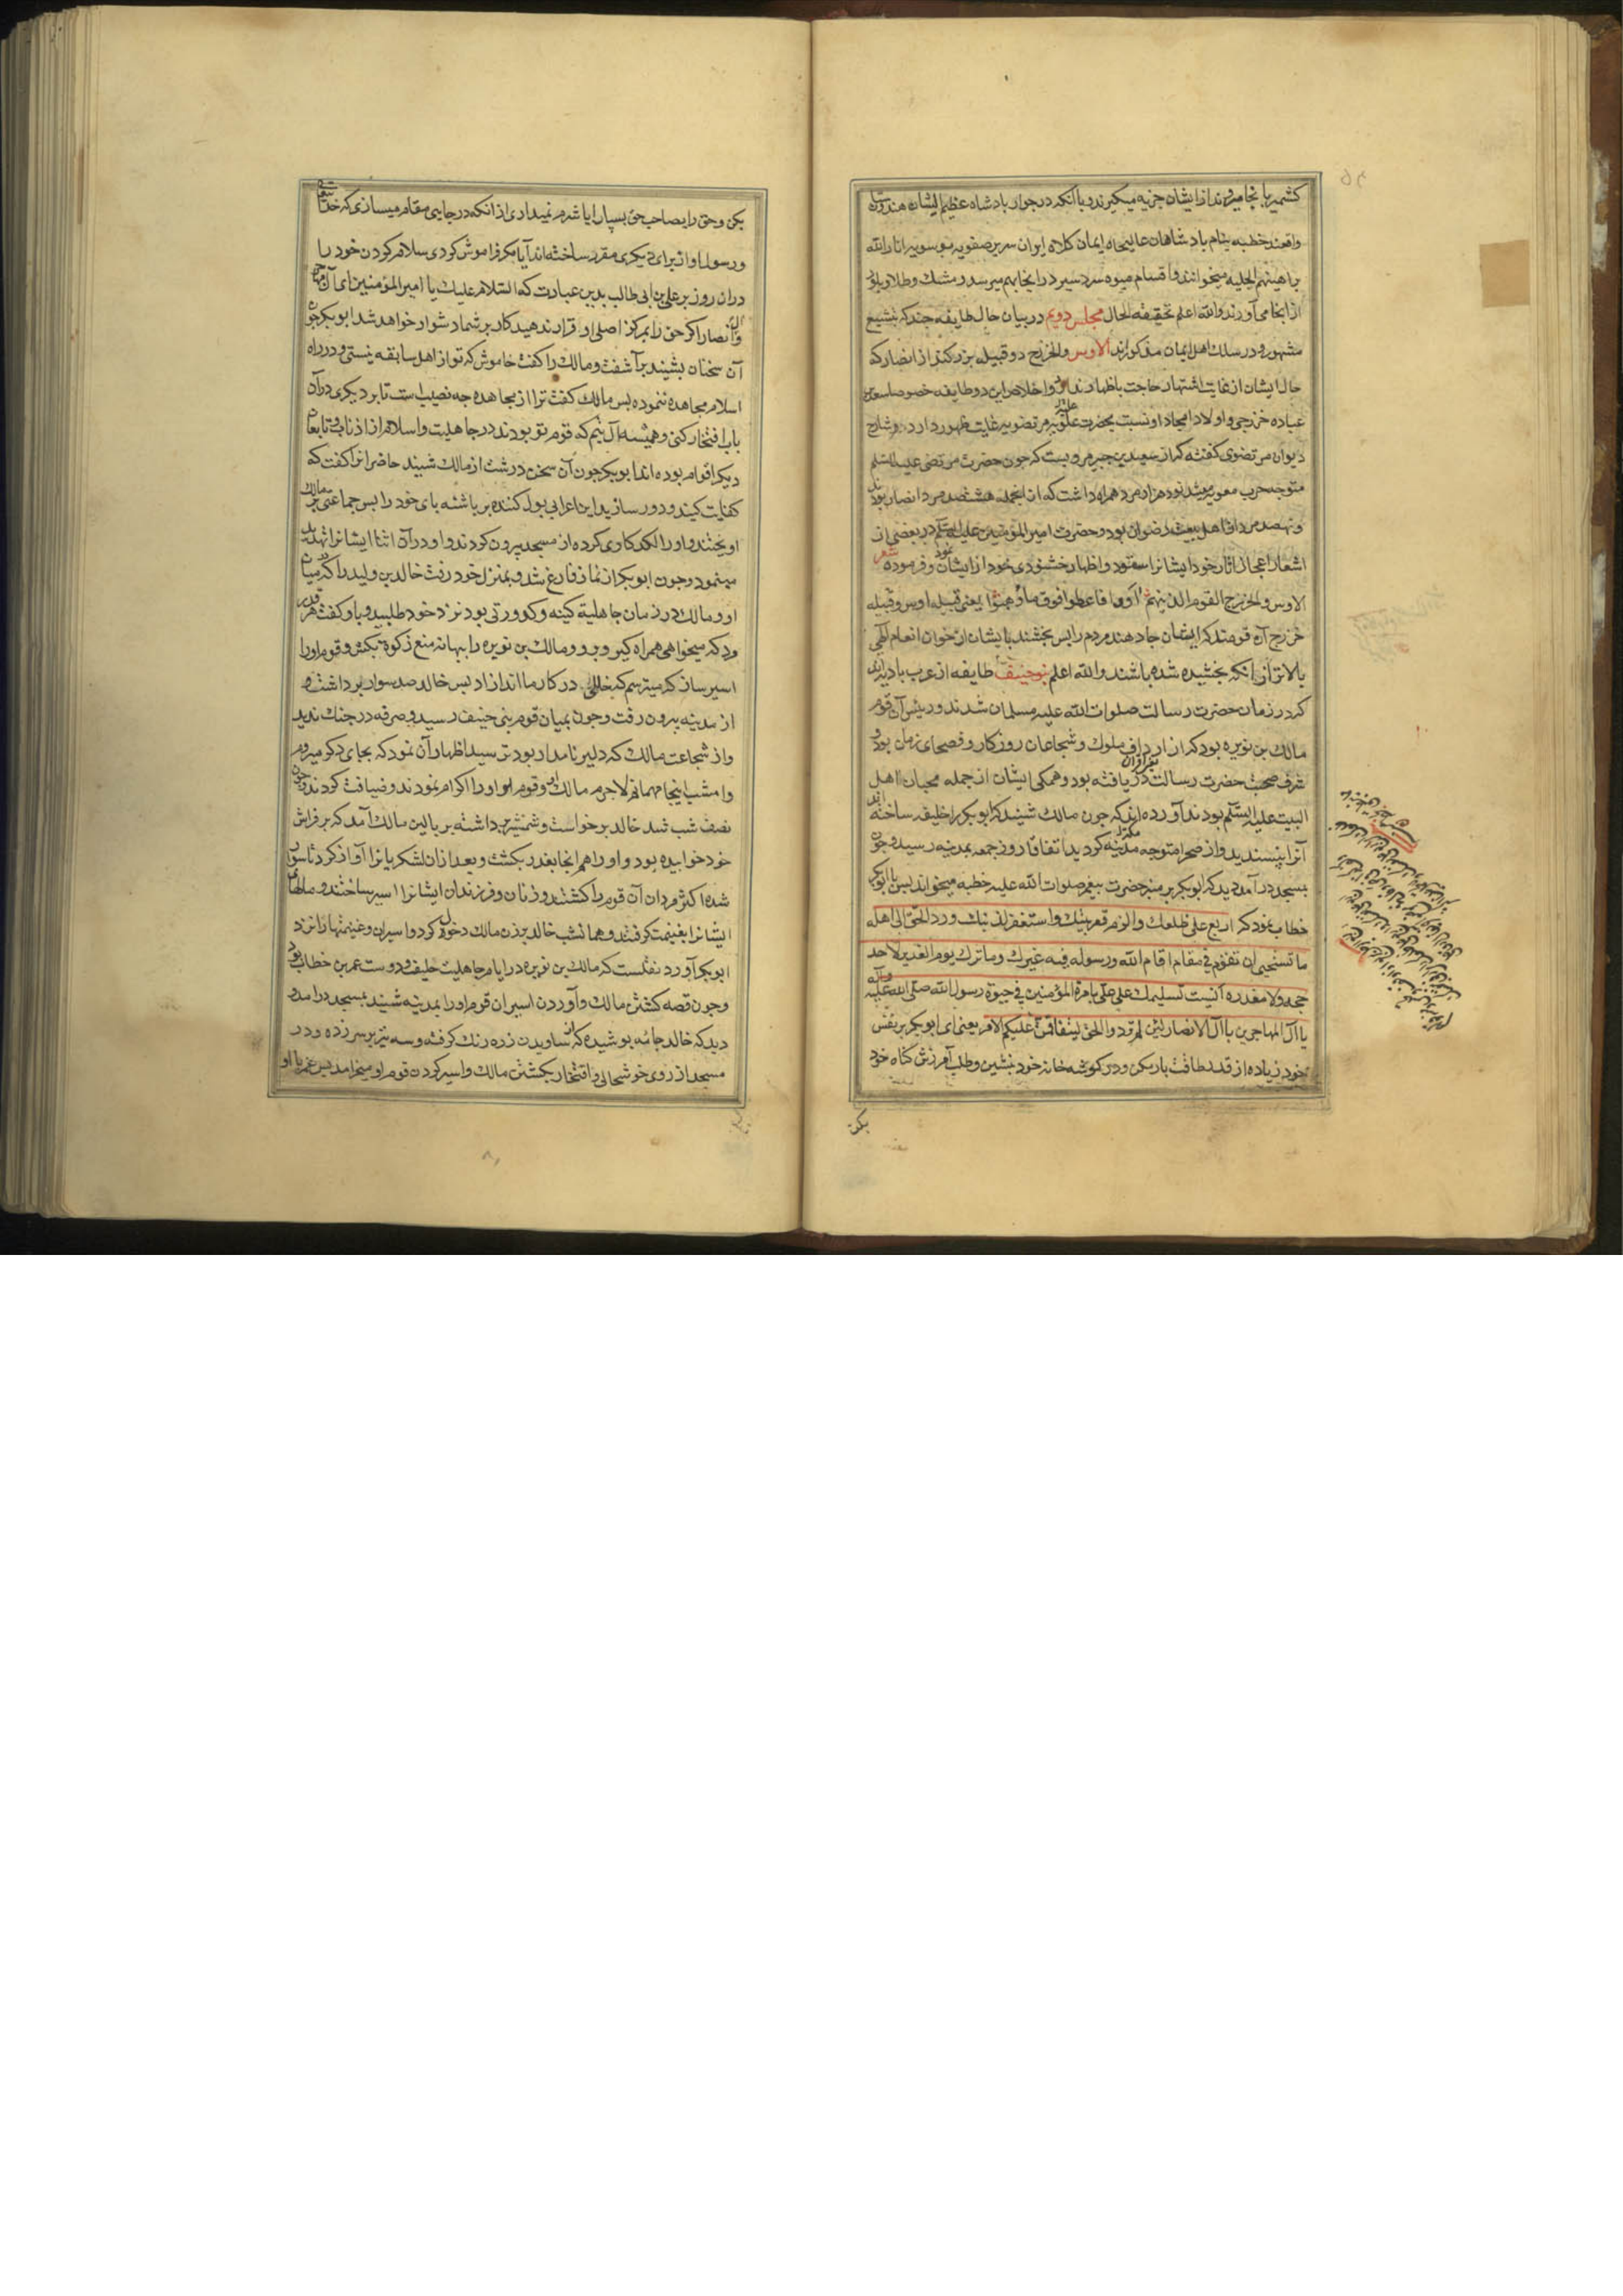 کشمیر بانجا میروند از ایشان جزیه میکیرند و با آنکه در جوار بادشاه عظیم الشان هندوستان
واقعند خطبه بنام بادشاهان عالیجاه ایمان کلاه ایران سریر صفویه موسویه انار الله
براهینهم الجلیه میخوانند و اقسام میوه سردسیر در انجا بهم میرسد و مشک و طلا و بلور
از انجا می آورند والله اعلم بحقیقة الحال مجلس دویم در بیان حال طایفه چند که بتشیع
مشهور و در سلک اهل ایمان مذکوراند الاوس والخزرج دو قبیله بزرکند از انصار که
حال ایشان از غایت اشتهار حاجت باظهار ندارد و اخلاص این دو طایفه خصوصا سعد بن
عباده خزرجی و اولاد امجاد او نسبت بحضرت علیه علویه مرتضویه غایت ظهور دارد و شارح
دیوان مرتضوی کفته که از سعید بن جبیر مرویست که چون حضرت مرتضی علیه السلم
متوجه حرب معویه میشد نود هزار مرد همراه داشت که از انجمله هشتصد مرد انصار بودند
و نهصد مرد از اهل بیعت رضوان بود و حضرت امیر المؤمنین علیه السلم در بعضی از
اشعار اعجاز اثار خود ایشانرا ستوده و اظهار خشنودی خود از ایشان نموده و فرموده شعر
الاوس والخزرج القوم الذین هم آووا فاعطوا فوق ما وهبوا یعنی قبیله اوس و قبیله
خزرج آن قومند که ایشان جا دهند مردم را پس بخشند بایشان از خوان انعام آلهی
بالاتر از آنکه بخشیده شده باشند والله اعلم بنو حنیف طایفه از عرب بادیه اند
که در زمان حضرت رسالت صلوات الله علیه مسلمان شدند و رئیس آن قوم
مالک بن نویره بود که از ارداف ملوک و شجاعان روزکار و فصحای زمان بود و
شرف صحبت حضرت رسالت را دریافته بود و همکی ایشان از جمله محبان اهل
البیت علیه السلم بودند آورده اند که چون مالک شنید که ابو بکر را خلیفه ساخته اند
آنرا نپسندید و از صحرا متوجه مدینه مکرمه کردید اتفاقا روز جمعه بمدینه رسید و چون
بمسجد در آمد دید که ابو بکر بر منبر حضرت پیغمبر صلوات الله علیه خطبه میخواند پس با ابو بکر
خطاب نمود که اربع علی ظلعک والزم قعر بیتک واستغفر لذنبک ورد الحق الی اهله
ما تستحیی ان تقوم فی مقام اقام الله ورسوله فیه غیرک وما ترک یوم الغدیر لاحد
حجه ولا معذره انسیت تسلیمک علی علی بامرة المؤمنین فی حیوة رسول الله صلی الله علیه وآله
یا آل المهاجرین یا آل الانصار لئن لم تردوا الحق لیتفاقمن علیکم الامر یعنی ای ابو بکر بر نفس
خود زیاده از قدر طاقت بار مکن و در کوشه خانه خود بنشین و طلب آمرزش کناه خود
بکن
بکن و حق را بصاحب حق بسپار ایا شرم نمیداری از انکه در جایی مقام میسازی که خدایتعالی
و رسول او از برای دیکری مقرر ساخته اند آیا مکر فراموش کردی سلام کردن خود را
در ان روز بر علی بن ابی طالب بدین عبارت که السلام علیک یا امیر المؤمنین ای آل مهاجر
و آل انصار اکر حق را بمرکز اصلی او قرار ندهید کار بر شما دشوار خواهد شد ابو بکر چون
آن سخنان بشنید بر آشفت و مالک را کفت خاموش که تو از اهل سابقه نیستی و در راه
اسلام مجاهده ننموده پس مالک کفت ترا از مجاهده چه نصیب است تا بر دیکری در آن
باب افتخار کنی و همیشه آل تیم که قوم تو بودند در جاهلیت و اسلام از اذناب و تابعان
دیکر اقوام بوده اند ابو بکر چون آن سخن درشت از مالک شنید حاضرانرا کفت که
کفایت کنید و دور سازید این اعرابی بول کننده بر پاشنه پای خود را پس جماعتی بر مالک
آویختند و او را لکد کاری کرده از مسجد بیرون کردند و او در آن اثنا ایشانرا تهدید
مینمود و چون ابو بکر از نماز فارغ شد و بمنزل خود رفت خالد بن ولید را که میان
او و مالک در زمان جاهلیة کینه و کدورتی بود نزد خود طلبید و باو کفت هر قدر
مرد که میخواهی همراه کیر و برو و مالک بن نویره را ببهانه منع زکوة بکش و قوم او را
اسیر ساز که میترسم که خللی در کار ما اندازد پس خالد صد سوار برداشت و
از مدینه بیرون رفت و چون بمیان قوم بنی حنیف رسید و صرفه در جنک ندید
و از شجاعت مالک که دلیر نامدار بود ترسید اظهار آن نمود که بجای دکر میروم
و امشب اینجا مهمانم لاجرم مالک و قوم او او را اکرام نمودند و ضیافت کردند و چون
نصف شب شد خالد برخواست و شمشیر برداشته بر بالین مالک آمد که بر فراش
خود خوابیده بود و او را هم انجا بغدر بکشت و بعد از ان لشکریانرا آواز کرد تا سوار
شده اکثر مردان آن قوم را کشتند و زنان و فرزندان ایشانرا اسیر ساختند و مالهای
ایشانرا بغنیمت کرفتند و همانشب خالد بزن مالک دخول کرد و اسیران و غنیمتها را نزد
ابو بکر آورد نقلست که مالک بن نویره در ایام جاهلیت حلیف و دوست عمر بن خطاب بود
و چون قصه کشتن مالک و آوردن اسیران قوم او را بمدینه شنید بمسجد در امد و
دید که خالد جامه پوشیده که از ساویدن زره رنک کرفته و سه تیر بر سر زده و در
مسجد از روی خوشحالی و افتخار بکشتن مالک و اسیر کردن قوم او میخرامد پس عمر با او